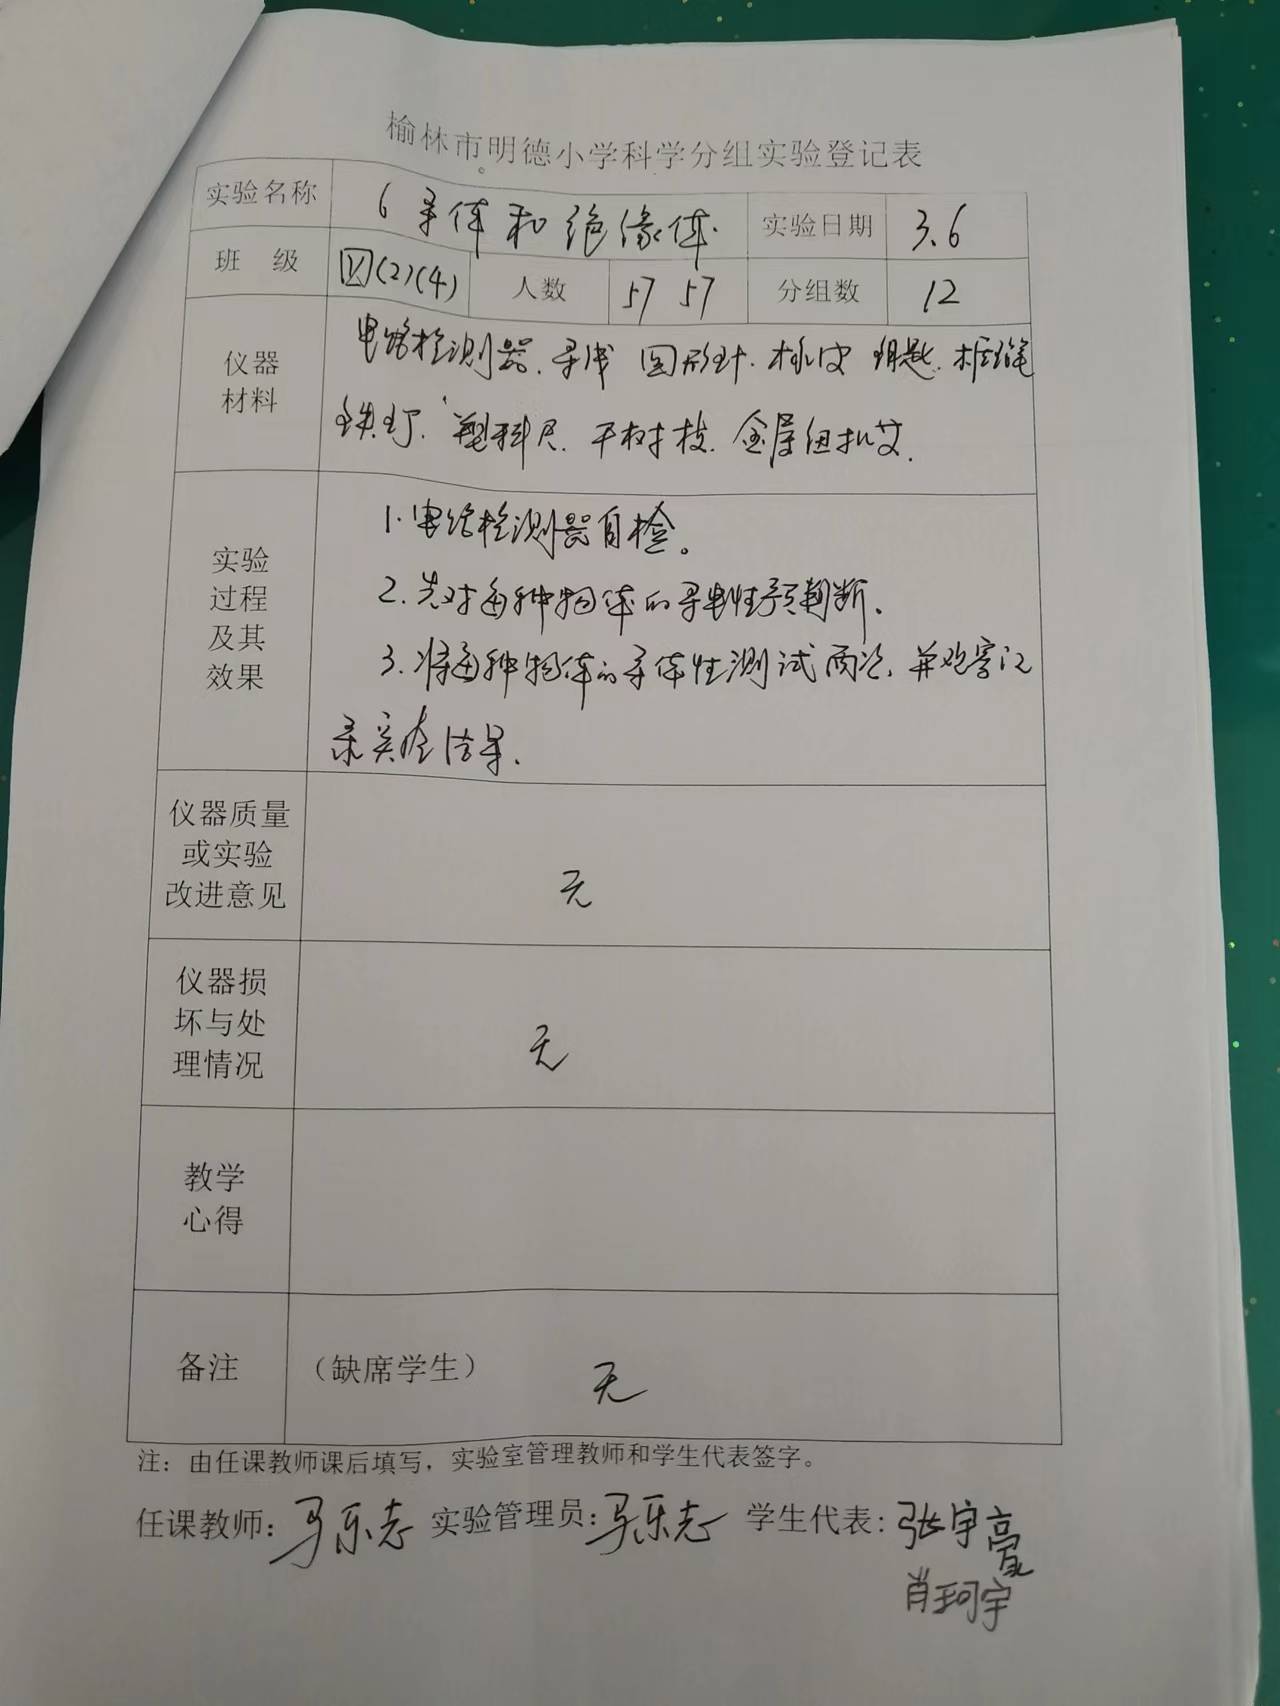 榆林市明德小学科学分组实验登记表
实验名称 6 导体和绝缘体. 实验日期 3.6
班 级 四(2)(4) 人数 57 57 分组数 12
仪器材料 电路检测器.导线 回形针.橡皮 钥匙.木铅笔
铁钉.塑料尺.干树枝.金属纽扣
实验过程及其效果 1.电路检测器自检。
2.先对每种物体的导电性预判断.
3.将每种物体的导体性测试两次,并观察记
录实验结果.
仪器质量或实验改进意见 无
仪器损坏与处理情况 无
教学心得
备注 (缺席学生) 无
注：由任课教师课后填写，实验室管理教师和学生代表签字。
任课教师：马乐志 实验管理员：马乐志 学生代表：张宇
肖珂宇